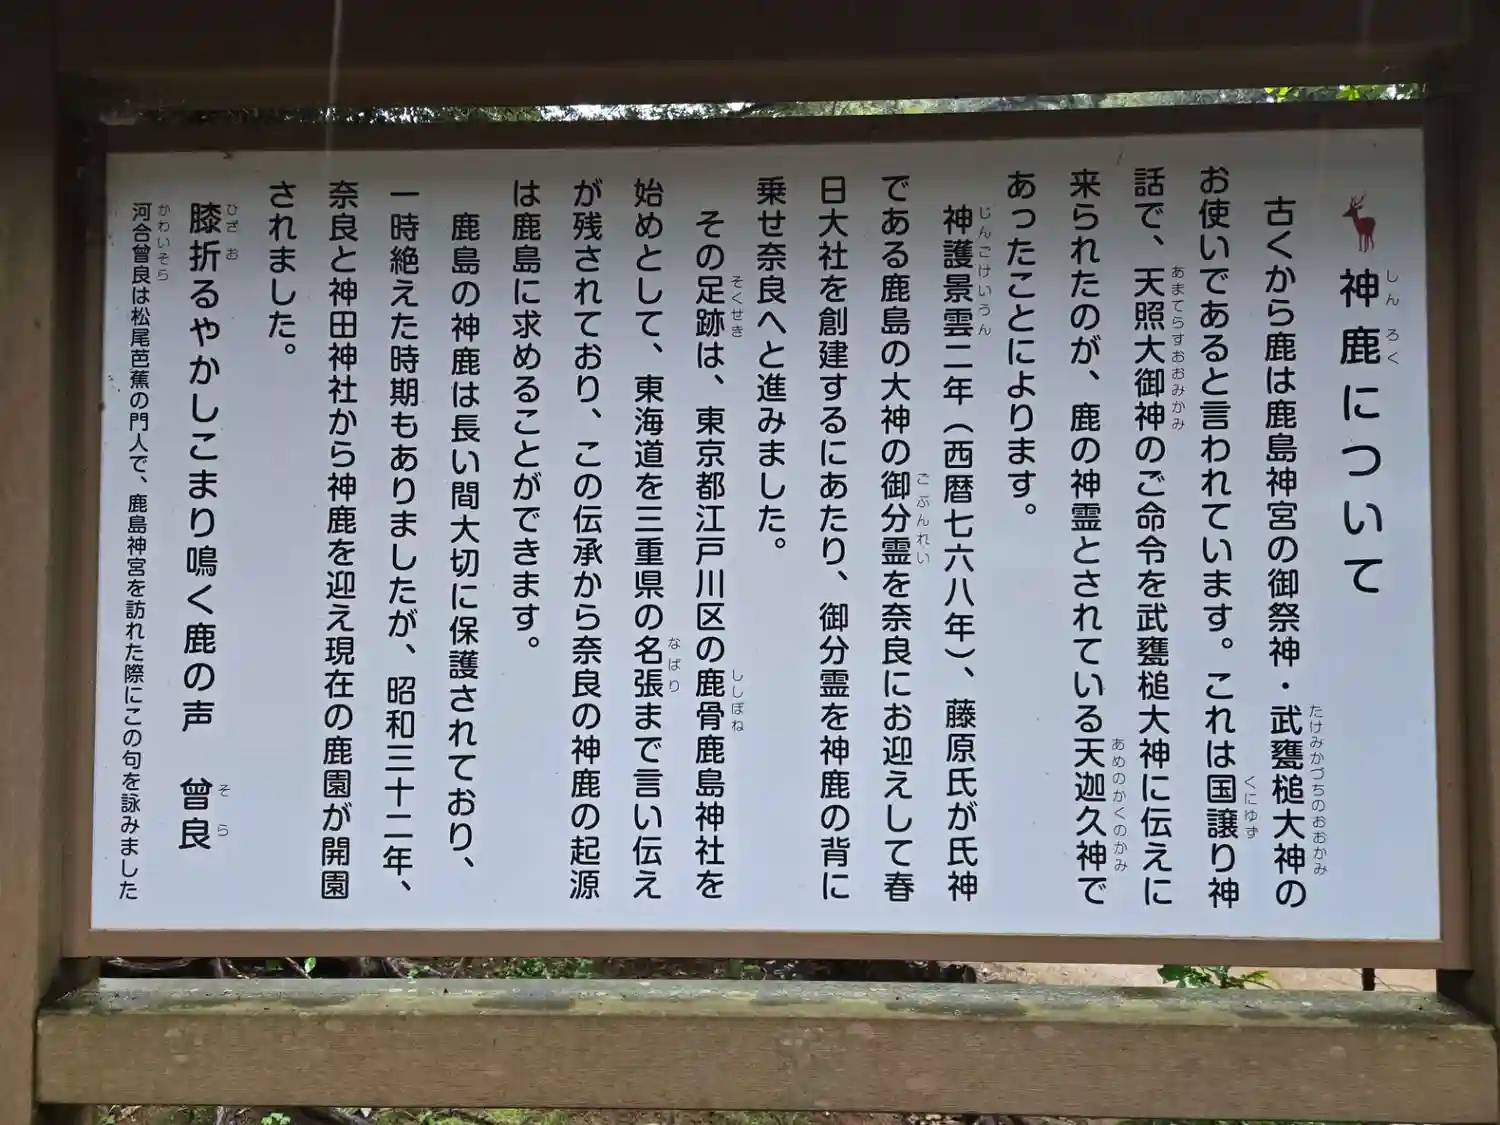 神鹿について
しんろく
古くから鹿は鹿島神宮の御祭神・武甕槌大神の
たけみかづちのおおかみ
お使いであると言われています。これは国譲り神
くにゆず
話で、天照大御神のご命令を武甕槌大神に伝えに
あまてらすおおみかみ
来られたのが、鹿の神霊とされている天迦久神で
あめのかくのかみ
あったことによります。
神護景雲二年（西暦七六八年）、藤原氏が氏神
じんごけいうん
である鹿島の大神の御分霊を奈良にお迎えして春
ごぶんれい
日大社を創建するにあたり、御分霊を神鹿の背に
乗せ奈良へと進みました。
その足跡は、東京都江戸川区の鹿骨鹿島神社を
そくせき ししぼね
始めとして、東海道を三重県の名張まで言い伝え
なばり
が残されており、この伝承から奈良の神鹿の起源
は鹿島に求めることができます。
鹿島の神鹿は長い間大切に保護されており、
一時絶えた時期もありましたが、昭和三十二年、
奈良と神田神社から神鹿を迎え現在の鹿園が開園
されました。
膝折るやかしこまり鳴く鹿の声 曾良
ひざお そら
河合曾良は松尾芭蕉の門人で、鹿島神宮を訪れた際にこの句を詠みました
かわいそら